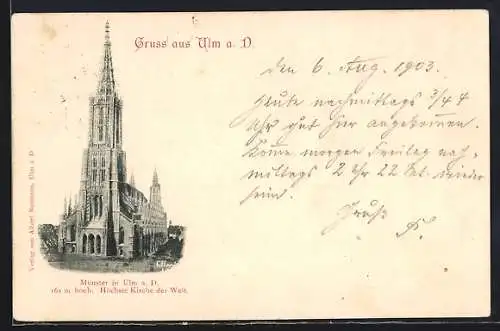 Gruss aus Ulm a. D.
den 6. Aug. 1903.
Heute nachmittags 3/4 4
Uhr gut hier angekommen.
Komme morgen Freitag nach-
mittags 2 Uhr 22 wieder
heim.
Gruß
Münster in Ulm a. D.
161 m hoch. Höchste Kirche der Welt.
Verlag von Albert Ulm a. D.